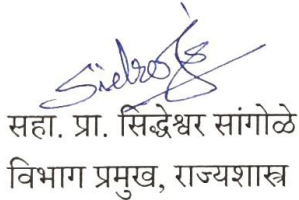 सहा. प्रा. सिद्धेश्वर सांगोळे
विभाग प्रमुख, राज्यशास्त्र